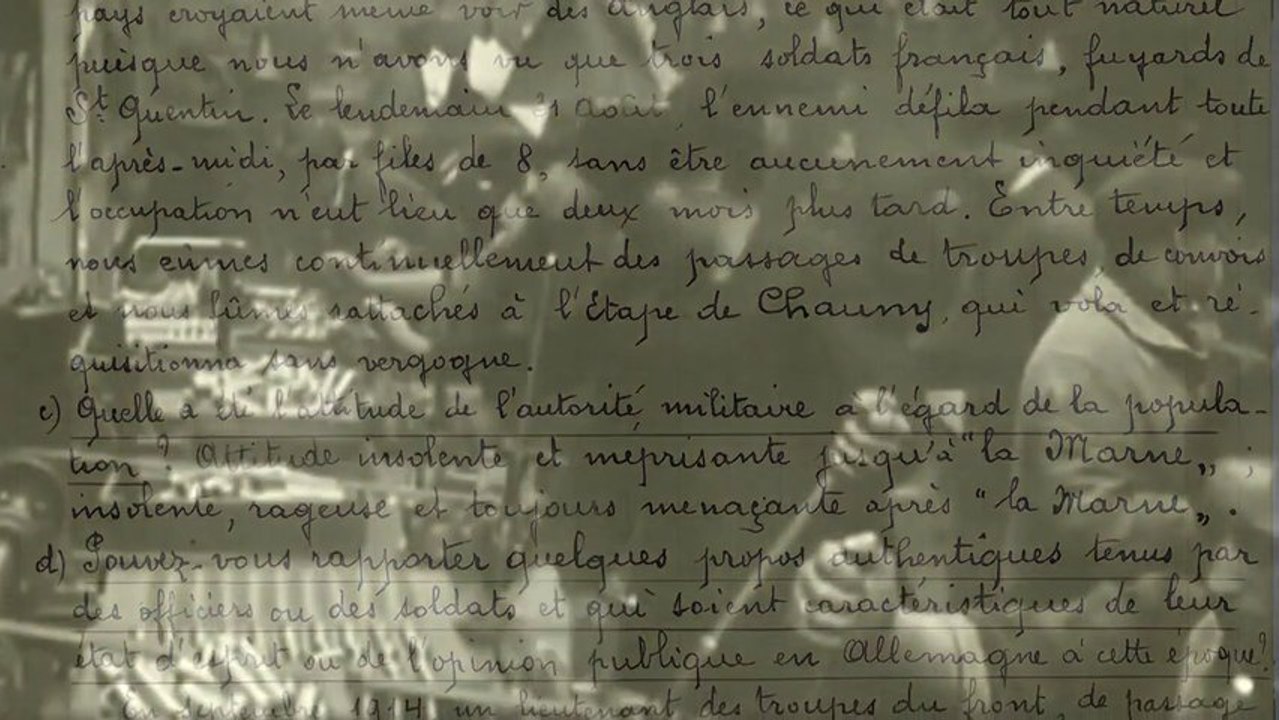 pays croyaient même voir des Anglais, ce qui était tout naturel
puisque nous n'avons vu que trois soldats français, fuyards de
St Quentin. Le lendemain 31 Août, l'ennemi défila pendant toute
l'après-midi, par files de 8, sans être aucunement inquiété et
l'occupation n'eut lieu que deux mois plus tard. Entre temps,
nous eûmes continuellement des passages de troupes, de convois
et nous fûmes rattachés à l'Étape de Chauny, qui vola et ré-
quisitionna sans vergogne.
c) Quelle a été l'attitude de l'autorité militaire à l'égard de la popula-
tion ? Attitude insolente et méprisante jusqu'à "la Marne„ ;
insolente, rageuse et toujours menaçante après "la Marne„.
d) Pouvez-vous rapporter quelques propos authentiques tenus par
des officiers ou des soldats et qui soient caractéristiques de leur
état d'esprit ou de l'opinion publique en Allemagne à cette époque ?
En Septembre 1914, un lieutenant des troupes du front, de passage